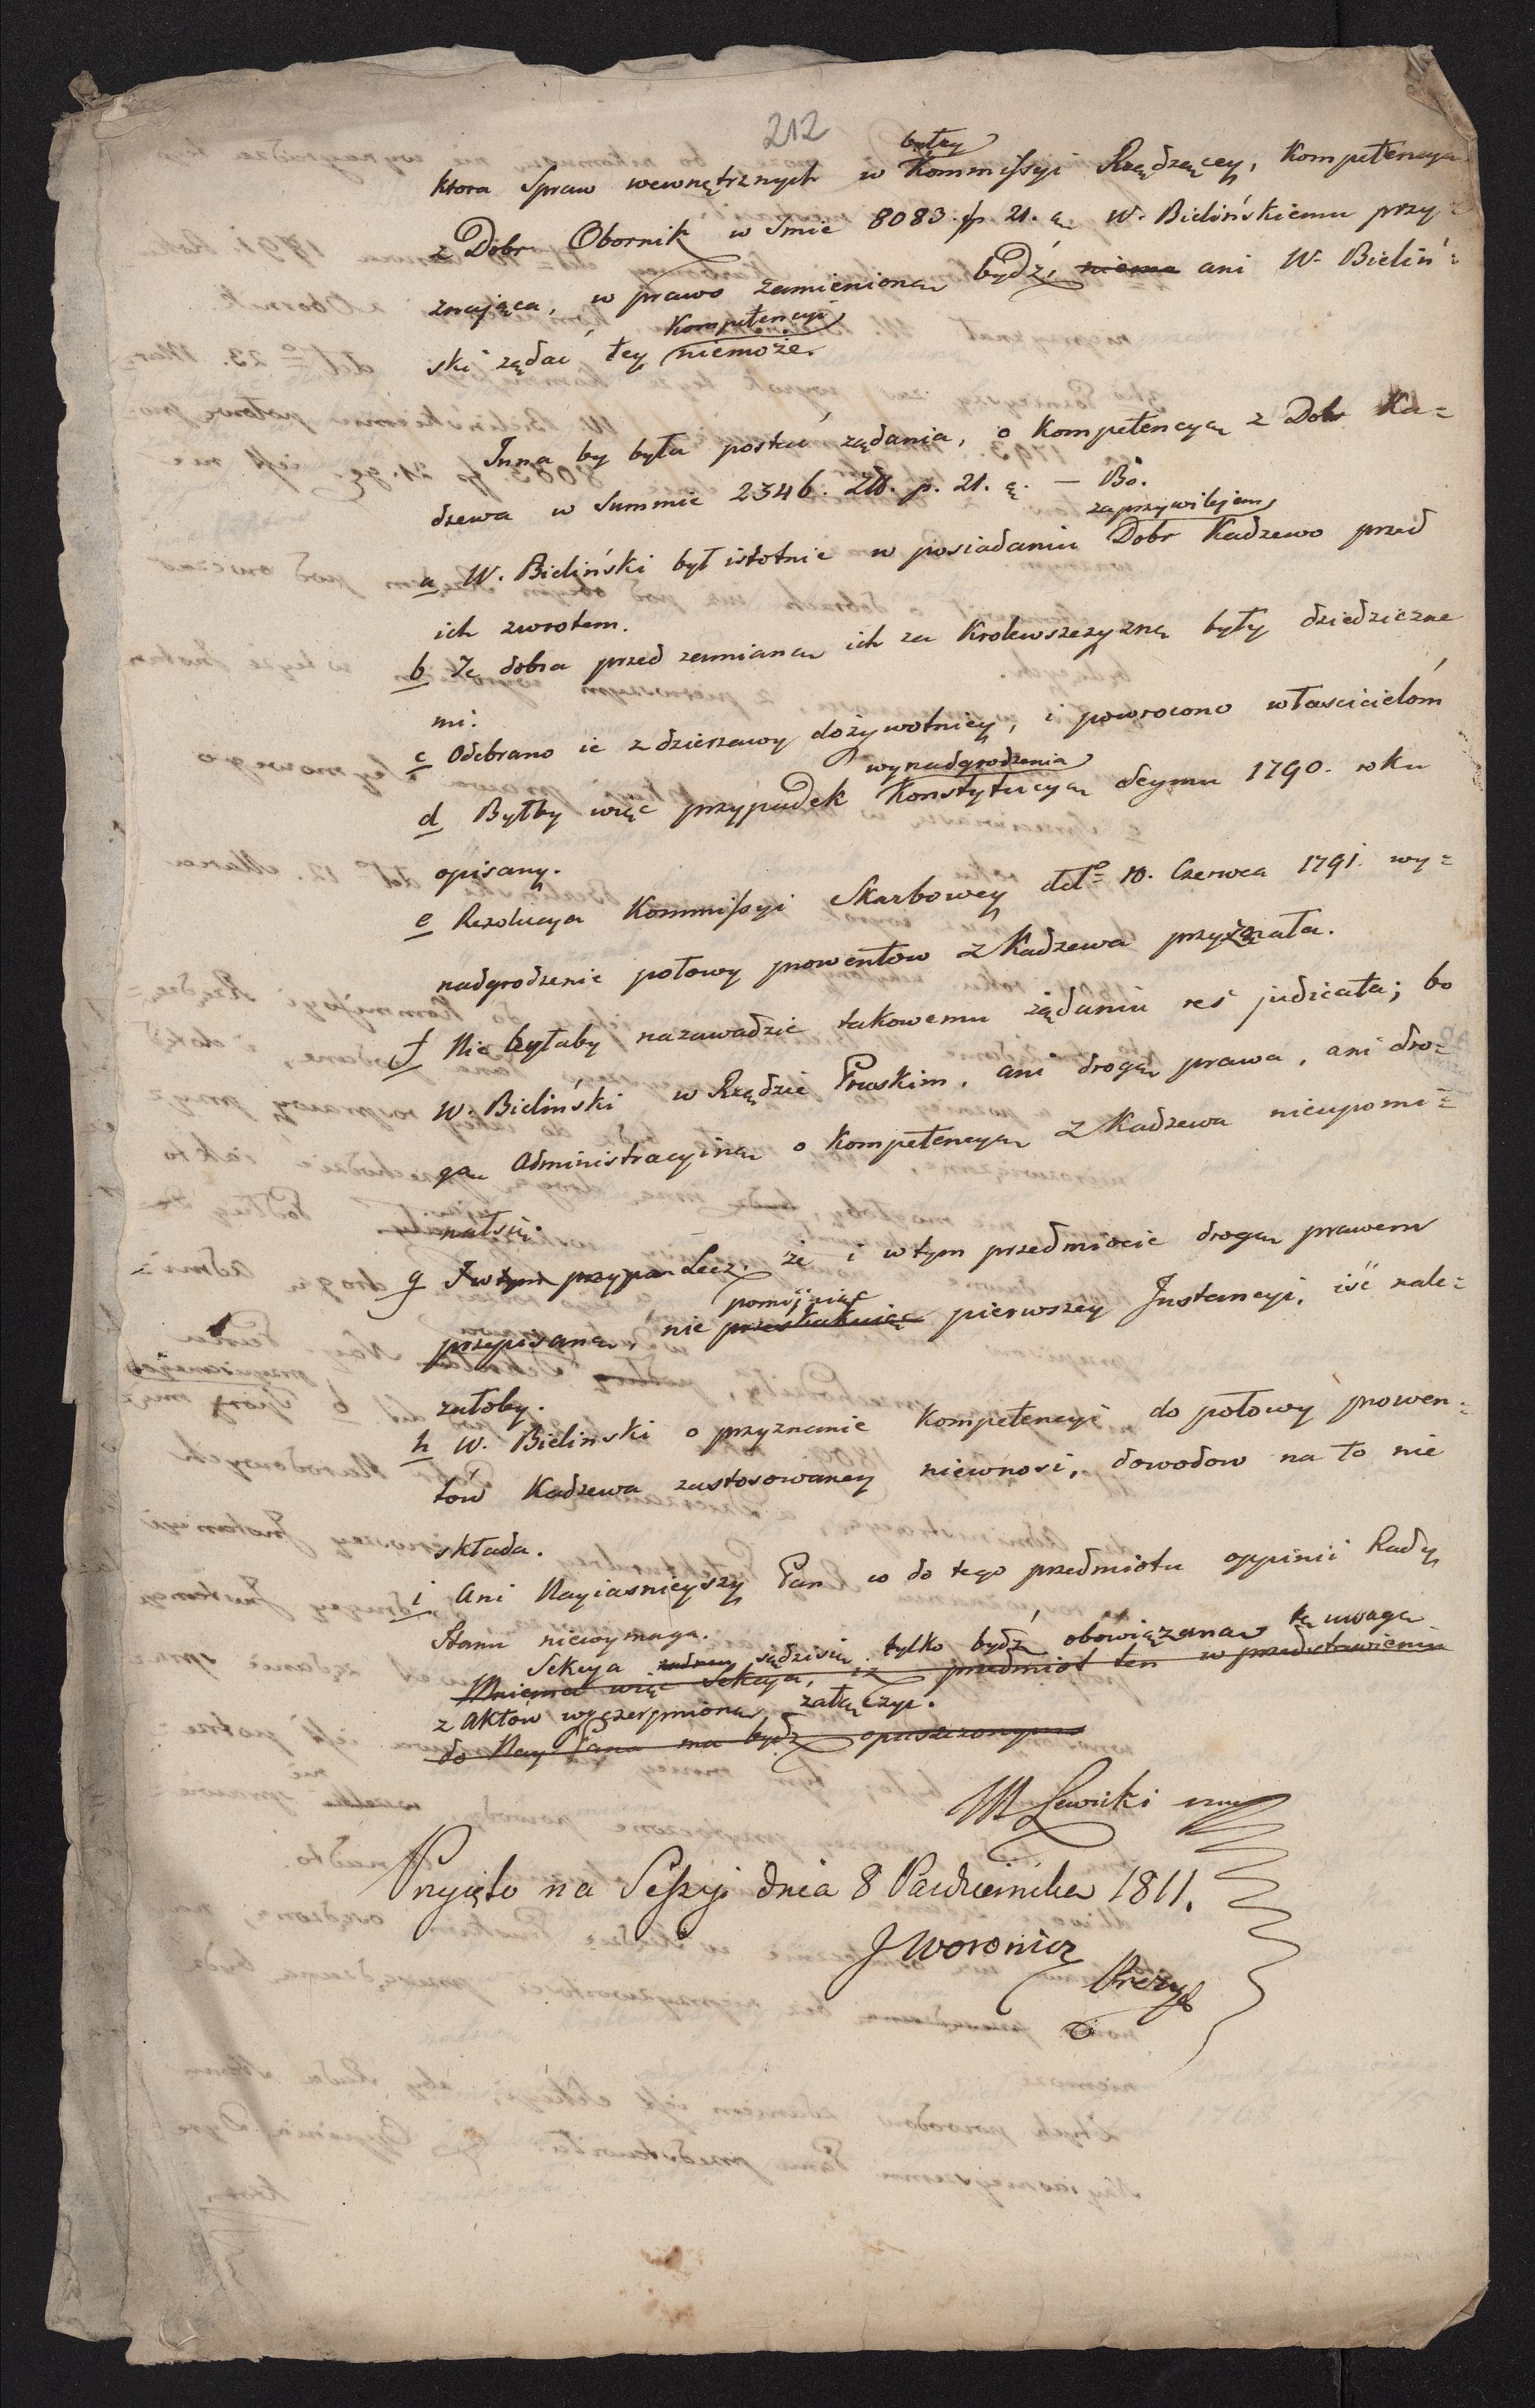 212
były
ktora Spraw wewnętrznych w Kommissyi Rządzącey, Kompetencya
z Dobr Obornik w Smie 8083. fp 21. g. W. Bielińskiemu przy=
znająca, w prawo zamieniona bydź, niema ani W. Bieliń=
Kompetencyi
ski żądać tey niemoże.
Inna by była postać żądania, o Kompetencyą z Dobr Ka=
dzewa w Summie 2346. Zł. p. 21. g. — Bo.
za przywilejem
a W. Bieliński był istotnie w posiadaniu Dobr Kadzewo przed
ich zwrotem.
b Te dobra przed zamianą ich za Krolewszczyznę były dziedziczne
mi.
c Odebrano ie z dzierzawy dożywotniey, i powrocono własciciełóm
wynadgrodzenia
d Byłby więc przypadek Konstytucyą Seymu 1790. roku
opisany.
e Rezolucya Kommissyi Skarbowey ddto 10. Czerwca 1791. wy=
nadgrodzenie połowy prowentow z Kadzewa przyznała.
f Nie byłaby nazawadzie takowemu żądaniu res judicata; bo
W. Bieliński w Rządzie Pruskim, ani drogą prawa, ani dro=
gą Administracyiną o Kompetencyą z Kadzewa nieupomi=
nałsię.
g I w tym przypa Lecz, że i w tym przedmiocie drogą prawem
pomijaiąc
przepisaną, nie pierwszey Instancyi, iść nale=
żałoby.
h W. Bielinski o przyznanie Kompetencyi do połowy prowen=
tów Kadzewa zastosowaney niewnosi, dowodow na to nie
składa.
i Ani Nayiasnieyszy Pan co do tego przedmiotu oppinii Rady
Stanu niewymaga.
Sekcya sądzisię tylko bydź obowiązaną tę uwagę
Mniema więc Sekcya, iż przedmiot ten w przedstawieniu
z Aktów wyczerpnioną załączyć.
do Nay. Pana ma bydź opuszczonym
M Lewicki mp
Przyięto na Sessyi dnia 8 Pazdziernika 1811.
J Woronicz
Prezyd